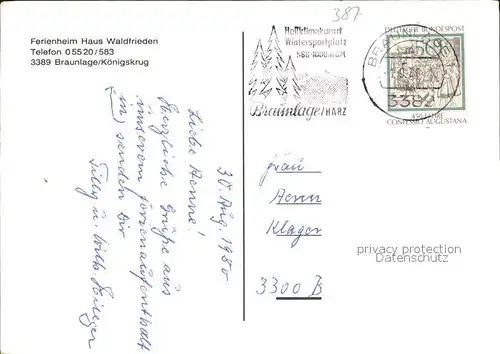 387
Ferienheim Haus Waldfrieden
Telefon 05520/583
3389 Braunlage/Königskrug
Heilklimakurort
Wintersportplatz
560-1000m ü.M.
Braunlage/HARZ
DEUTSCHE BUNDESPOST
BRAUNLAGE
3389
450 JAHRE
CONFESSIO AUGUSTANA
30. Aug. 1980
Liebe Aenne!
Herzliche Grüße aus
unserem Ferienaufenthalt
senden Dir
Tilly u. Willi
Frau
Aenn
Klages
3300 B
privacy protection
Datenschutz